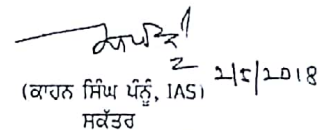 2/5/2018
(ਕਾਹਨ ਸਿੰਘ ਪੰਨੂੰ, IAS)
ਸਕੱਤਰ